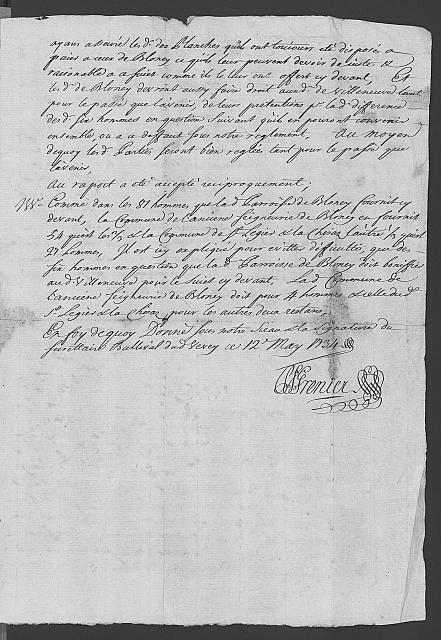 ayans assuré les d. des Planches qu'ils ont toujours été disposés a
païer a ceux de Blonay ce qu'ils leur peuvent devoir de juste &
raisonable a ce sujet comme ils le leur ont offert cy devant, Et
les d. de Blonay devront aussy faire droit aux d. de Villeneuve tant
pour le passé que l'avenir, de leurs pretentions p. la d. difference
des d. six hommes en question suivant qu'ils en pouront convenir
ensemble, ou a ce deffaut sous notre reglement, Au moyen
dequoy les d. Parties seront bien reglées tant pour le passé que
l'avenir,
Au raport a été accepté reciproquement;
Comme dans les 81 hommes que la d. Parroisse de Blonay fournit cy
devant, la Commune de l'ancienne seigneurie de Blonay en fournit
54 & la Commune de S. Legier & la Chiesaz l'autre
27 hommes, Il est icy expliqué pour eviter difficulté, que des
six hommes en question que la d. Parroisse de Blonay doit bonifier
au d. Villeneuve pour le sujet cy devant, La d. Commune de
l'ancienne seigneurie de Blonay doit pour 4 hommes & celle de
S. Legier & la Chiesaz pour les autres deux restans,
En foy dequoy Donné sous notre sceau & la signature du
secretaire Ballival du d. Vevey ce 12. May 1734.
Grenier